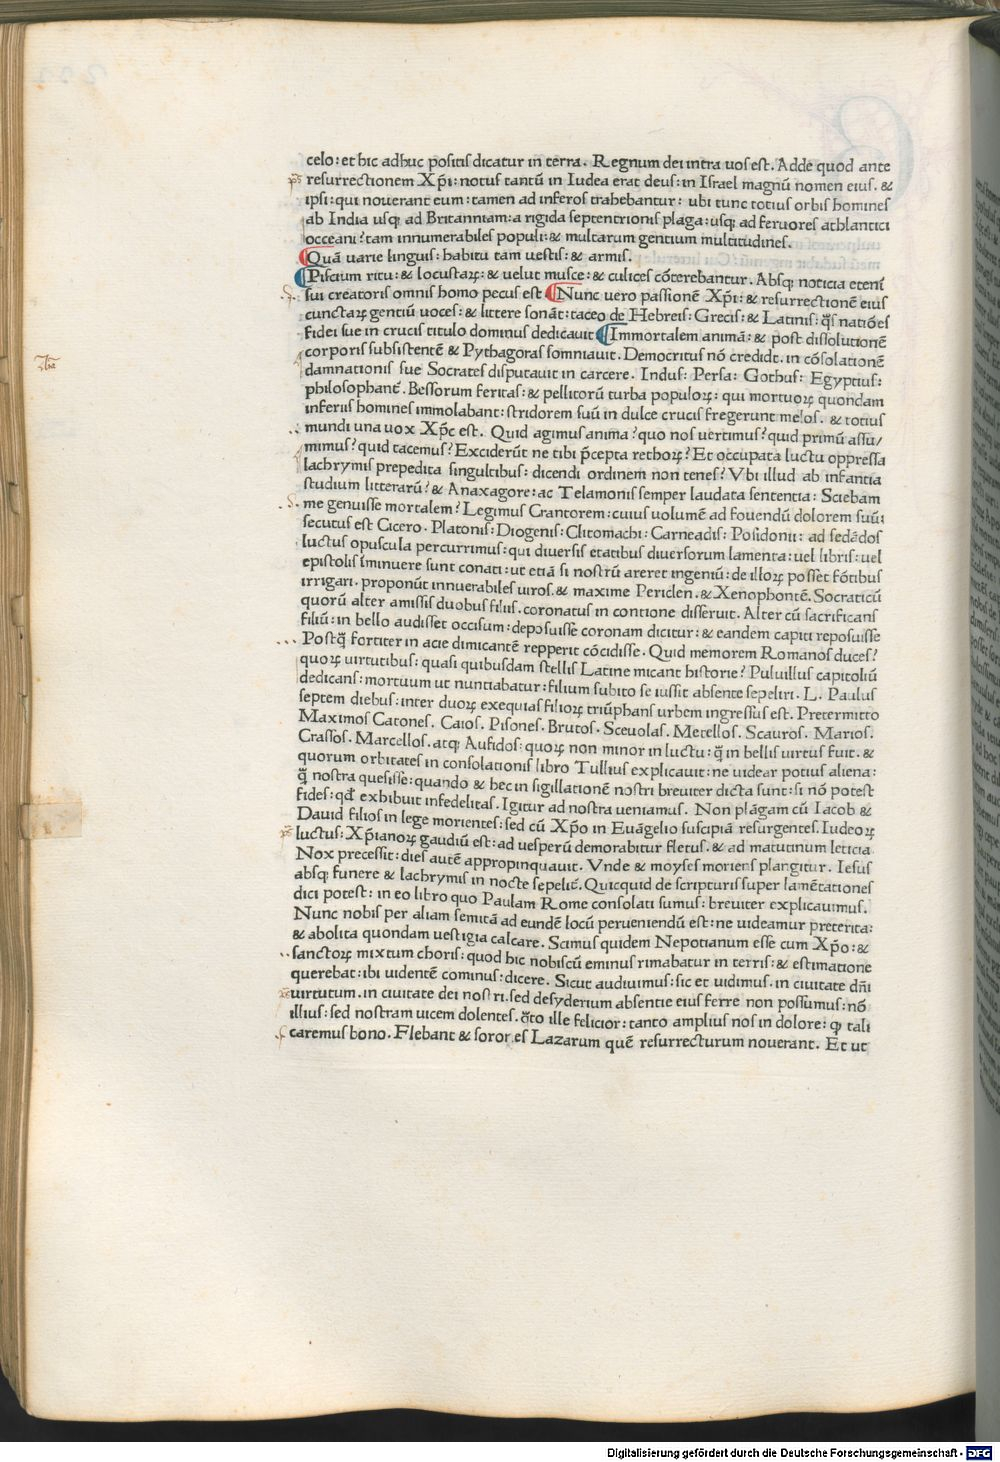 celo: et hic adhuc positis dicatur in terra. Regnum dei intra uos est. Adde quod ante
resurrectionem Xp̄i: notus tantū in Iudea erat deus: in Israel magnū nomen eius. &
ipsi: qui nouerant eum: tamen ad inferos trahebantur: ubi tunc totius orbis homines
ab India usq; ad Britanniam: a rigida septentrionis plaga: usq; ad feruores athlantici
occeani? tam innumerabiles populi: & multarum gentium multitudines.
Quā uarie linguis: habitu tam uestis: & armis.
Piscium ritu: & locustaꝝ: & uelut musce: & culices cōterebantur. Absq; noticia etenī
sui creatoris omnis homo pecus est Nunc uero passionē Xp̄i: & resurrectionē eius
cunctaꝝ gentiū uoces: & littere sonāt: taceo de Hebreis: Grecis: & Latinis: q̄s natiōes
fidei sue in crucis titulo dominus dedicauit Immortalem animā: & post dissolutionē
corporis subsistentē & Pythagoras somniauit. Democritus nō credidt. in cōsolationē
damnationis sue Socrates disputauit in carcere. Indus: Persa: Gothus: Egyptius:
philosophant̄. Bessorum feritas: & pellitorū turba populoꝝ: qui mortuoꝝ quondam
inferiis homines immolabant: stridorem suū in dulce crucis fregerunt melos. & totius
mundi una uox Xp̄c est. Quid agimus anima? quo nos uertimus? quid primū assu/
mimus? quid tacemus? Exciderūt ne tibi p̄cepta rethoꝝ? Et occupata luctu oppressa
lachrymis prepedita singultibus: dicendi ordinem non tenes? Vbi illud ab infantia
studium litterarū? & Anaxagore: ac Telamonis semper laudata sententia: Sciebam
me genuisse mortalem? Legimus Crantorem: cuius volumē ad fouendū dolorem suū:
secutus est Cicero. Platonis: Diogenis: Clitomachi: Carneadis: Posidonii: ad sedādos
luctus opuscula percurrimus: qui diuersis etatibus diuersorum lamenta: uel libris: uel
epistolis īminuere sunt conati: ut etiā si nostrū areret ingeniū: de illoꝝ posset fōtibus
irrigari. proponūt innuerabiles uiros. & maxime Periclen. & Xenophontē. Socraticū
quorū alter amissis duobus filiis. coronatus in contione disseruit. Alter cū sacrificans
filiū: in bello audisset occisum: deposuisse coronam dicitur: & eandem capiti reposuisse
Postq̄ fortiter in acie dimicantē repperit cōcidisse. Quid memorem Romanos duces?
quoꝝ uirtutibus: quasi quibusdam stellis Latine micant historie? Puluillus capitoliū
dedicans: mortuum ut nuntiabatur: filium subito se iussit absente sepeliri. L. Paulus
septem diebus: inter duoꝝ exequias filioꝝ triūphans urbem ingressus est. Pretermitto
Maximos Catones. Caios. Pisones. Brutos. Sceuolas. Metellos. Scauros. Marios.
Crassos. Marcellos. atq; Aufidos: quoꝝ non minor in luctu: q̄ in bellis uirtus fuit. &
quorum orbitates in consolationis libro Tullius explicauit: ne uidear potius aliena:
q̄ nostra quesisse: quando & hec in sigillationē nostri breuiter dicta sunt: si nō potest
fides: qđ exhibuit infedelitas. Igitur ad nostra ueniamus. Non plāgam cū Iacob &
Dauid filios in lege morientes: sed cū Xp̄o in Euāgelio suscipiā resurgentes. Iudeoꝝ
luctus: Xp̄ianoꝝ gaudiū est: ad uesperū demorabitur fletus. & ad matutinum leticia.
Nox precessit: dies autē appropinquauit. Vnde & moyses moriens plangitur. Iesus
absq; funere & lachrymis in nocte sepelit̄. Quicquid de scripturis super lamētationes
dici potest: in eo libro quo Paulam Rome consolati sumus: breuiter explicauimus.
Nunc nobis per aliam semitā ad eundē locū perueniendū est: ne uideamur preterita:
& abolita quondam uestigia calcare. Scimus quidem Nepotianum esse cum Xp̄o: &
sanctoꝝ mixtum choris: quod hic nobiscū eminus rimabatur in terris: & estimatione
querebat: ibi uidentē cominus: dicere. Sicut audiuimus: sic et uidimus. in ciuitate dn̄i
uirtutum. in ciuitate dei nostri. sed desyderium absentie eius ferre non possumus: nō
illius: sed nostram uicem dolentes. q̄to ille felicior: tanto amplius nos in dolore: ꝙ tali
caremus bono. Flebant & sorores Lazarum quē resurrecturum nouerant. Et ut
Digitalisierung gefördert durch die Deutsche Forschungsgemeinschaft - DFG